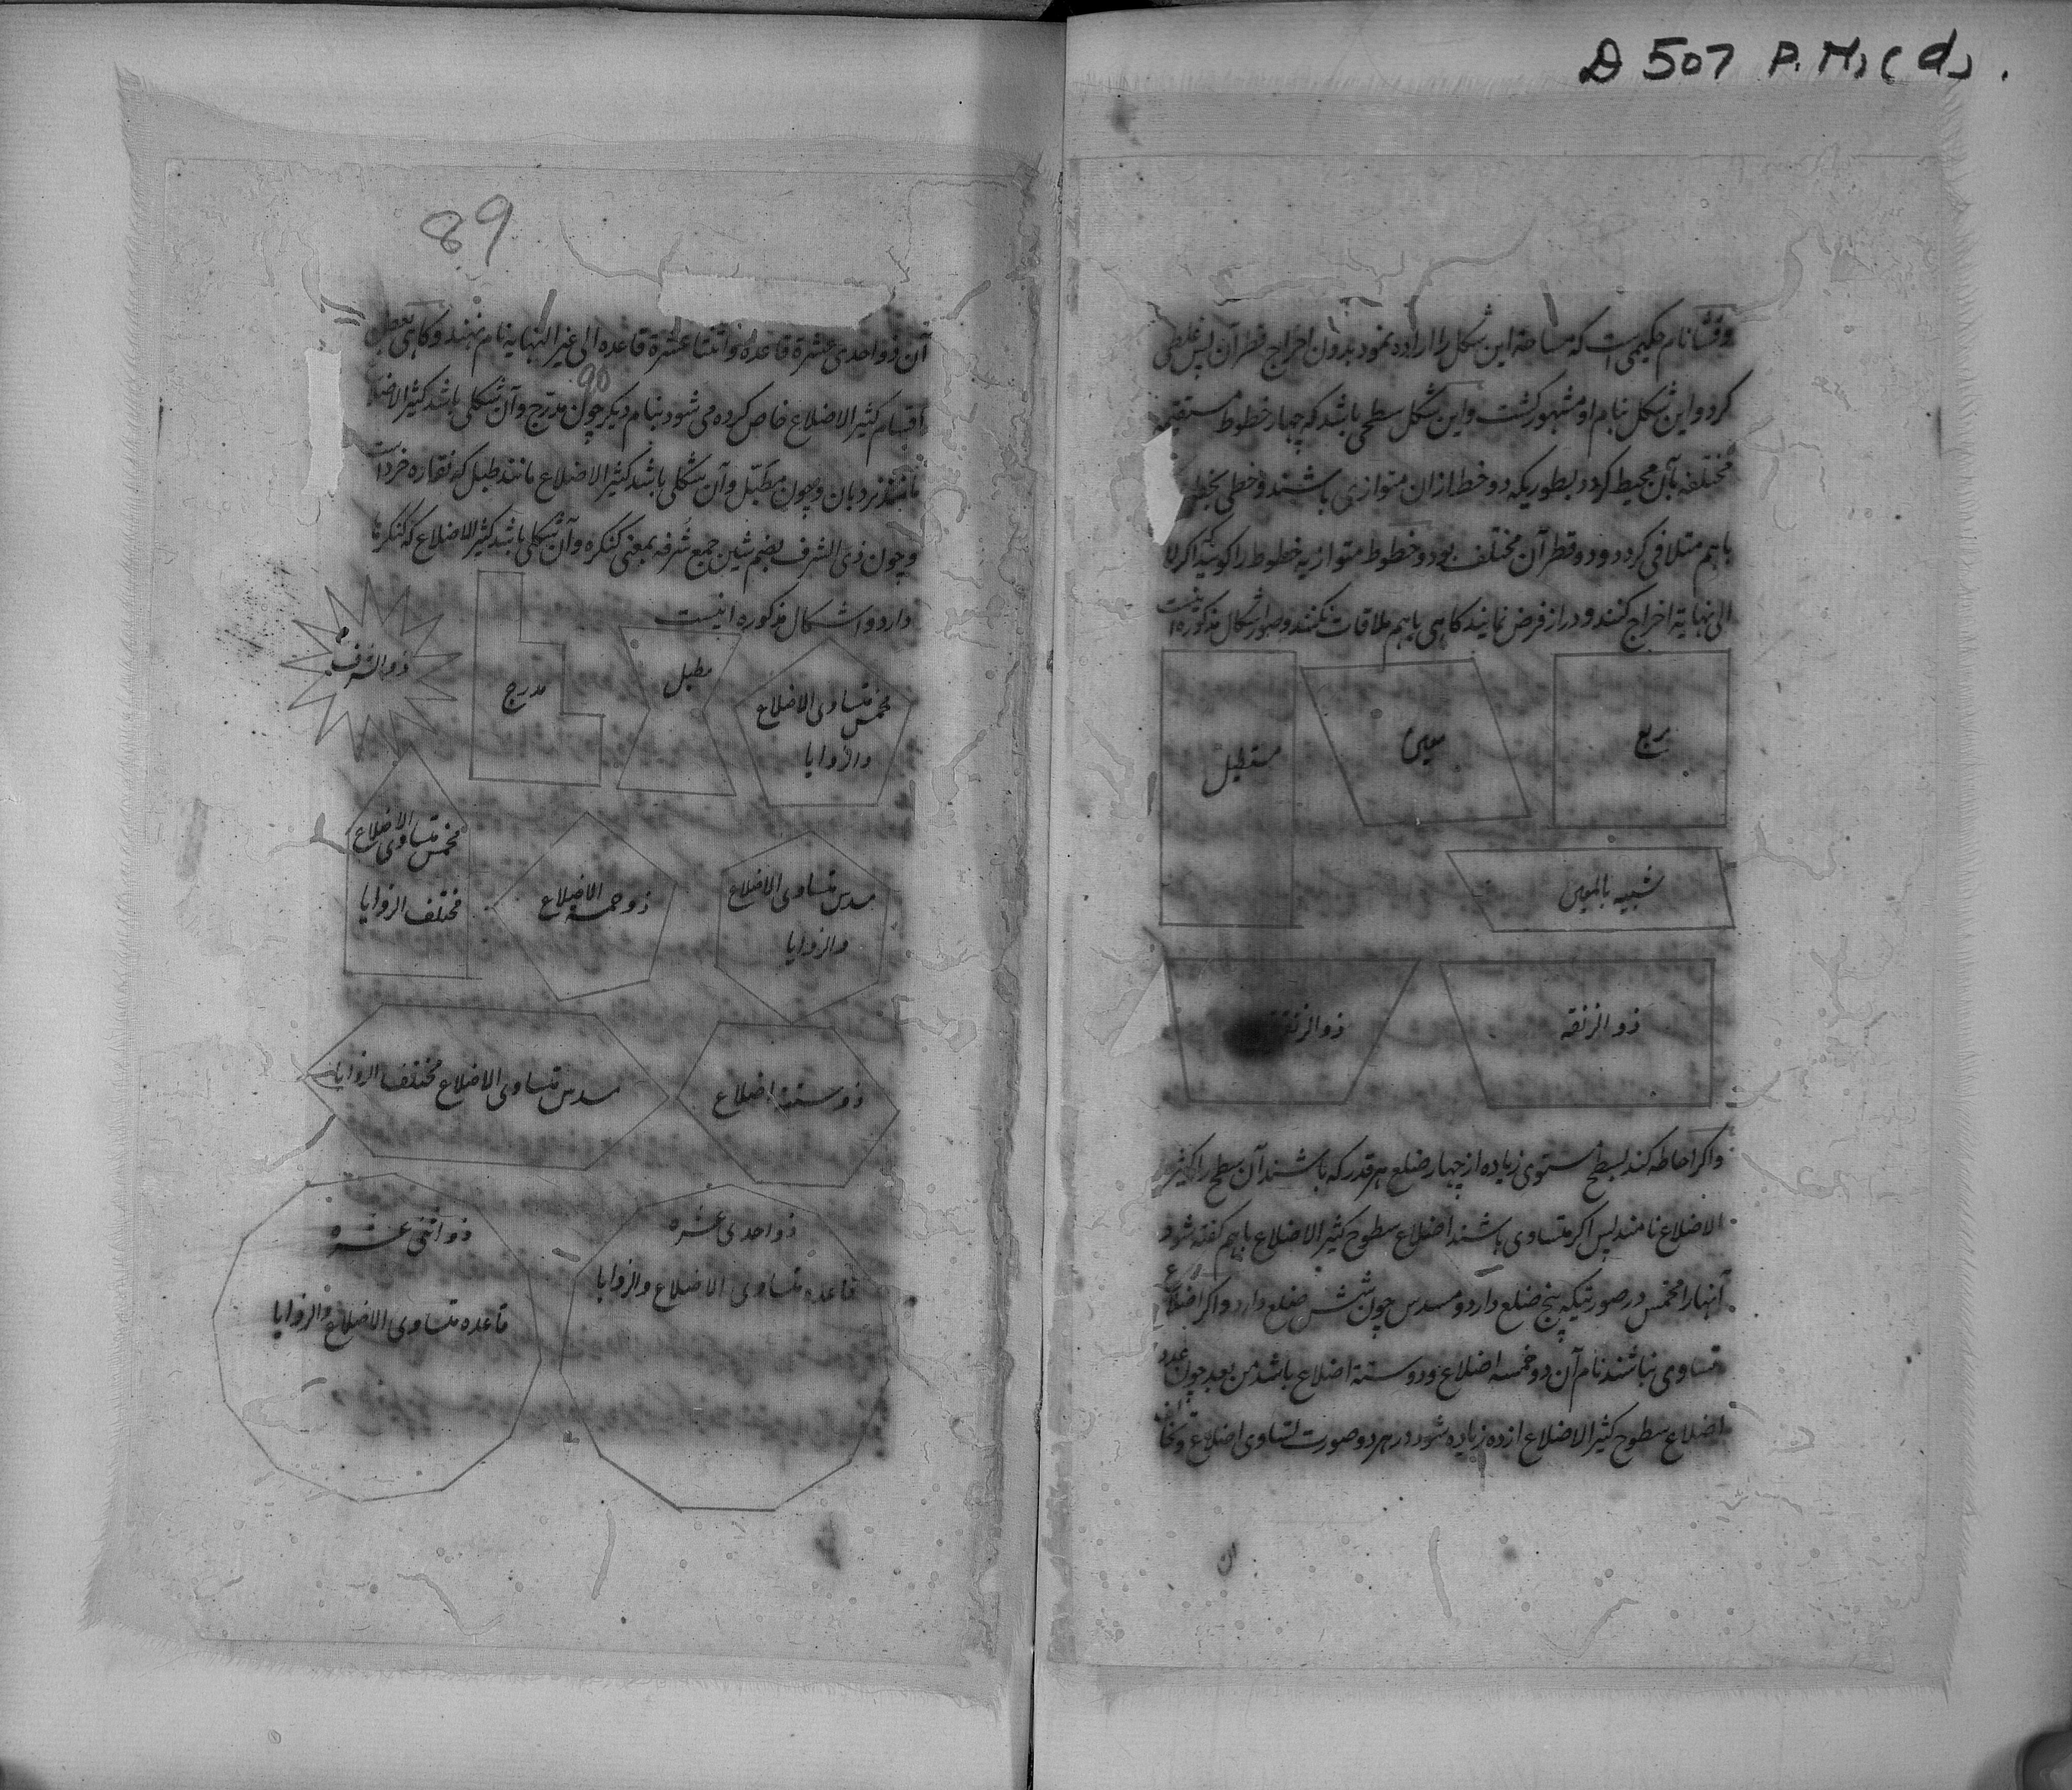 D 507 P. Ms (d)
وقشا نام حکیمی است که مساحة این شکل را اراده نمود بدون اخراج قطر آن پس غلطی
کرد و این شکل بنام او مشهور گشت و این شکل سطحی باشد که چهار خطوط مستقیمه
مختلفه بآن محیط گردد بطوریکه دو خط ازان متوازی باشند و خطی بخطی
باهم متلاقی گردد و دو قطر آن مختلف بود و خطوط متوازیه خطوط را گویند که اگر تا
الی نهایة اخراج کنند و دراز فرض نمایند گاهی باهم ملاقات نکنند و صور اشکال مذکوره اینست
مربع
معین
مستطیل
شبیه بالمعین
ذو الزنقه
ذو الزنقه
و اگر احاطه کند بسطح مستوی زیاده از چهار ضلع هر قدر که باشند آن سطح را کثیر
الاضلاع نامند پس اگر متساوی باشند اضلاع سطوح کثیر الاضلاع باهم گفته شود
آنها را مخمس در صورتیکه پنج ضلع دارد و مسدس چون شش ضلع دارد و اگر اضلاع
متساوی نباشند نام آن ذو خمسه اضلاع و ذو ستة اضلاع باشد من بعد چون عدد
اضلاع سطوح کثیر الاضلاع از ده زیاده شود در هر دو صورت تساوی اضلاع و تخالف
ان
89
آن ذو احدی عشرة قاعده و ذو اثنتا عشرة قاعده الی غیر النهایه نام نهند و گاهی بعض
90
اقسام کثیر الاضلاع خاص کرده می شود بنام دیگر چون مدرج و آن شکلی باشد کثیر الاضلاع
مانند نردبان و چون مطبل و آن شکلی باشد کثیر الاضلاع مانند طبل که نقاره خرد است
و چون ذی الشرف بضم شین جمع شرفه بمعنی کنگره و آن شکلی باشد کثیر الاضلاع که کنگرها
دارد و اشکال مذکوره اینست
مخمس متساوی الاضلاع
والزوایا
مطبل
مدرج
ذو الشرف
مسدس متساوی الاضلاع
والزوایا
ذو خمسه الاضلاع
مخمس متساوی الاضلاع
مختلف الزوایا
ذو ستة اضلاع
مسدس متساوی الاضلاع مختلف الزوایا
ذو احدی عشره
قاعده متساوی الاضلاع والزوایا
ذو اثنی عشره
قاعده متساوی الاضلاع والزوایا